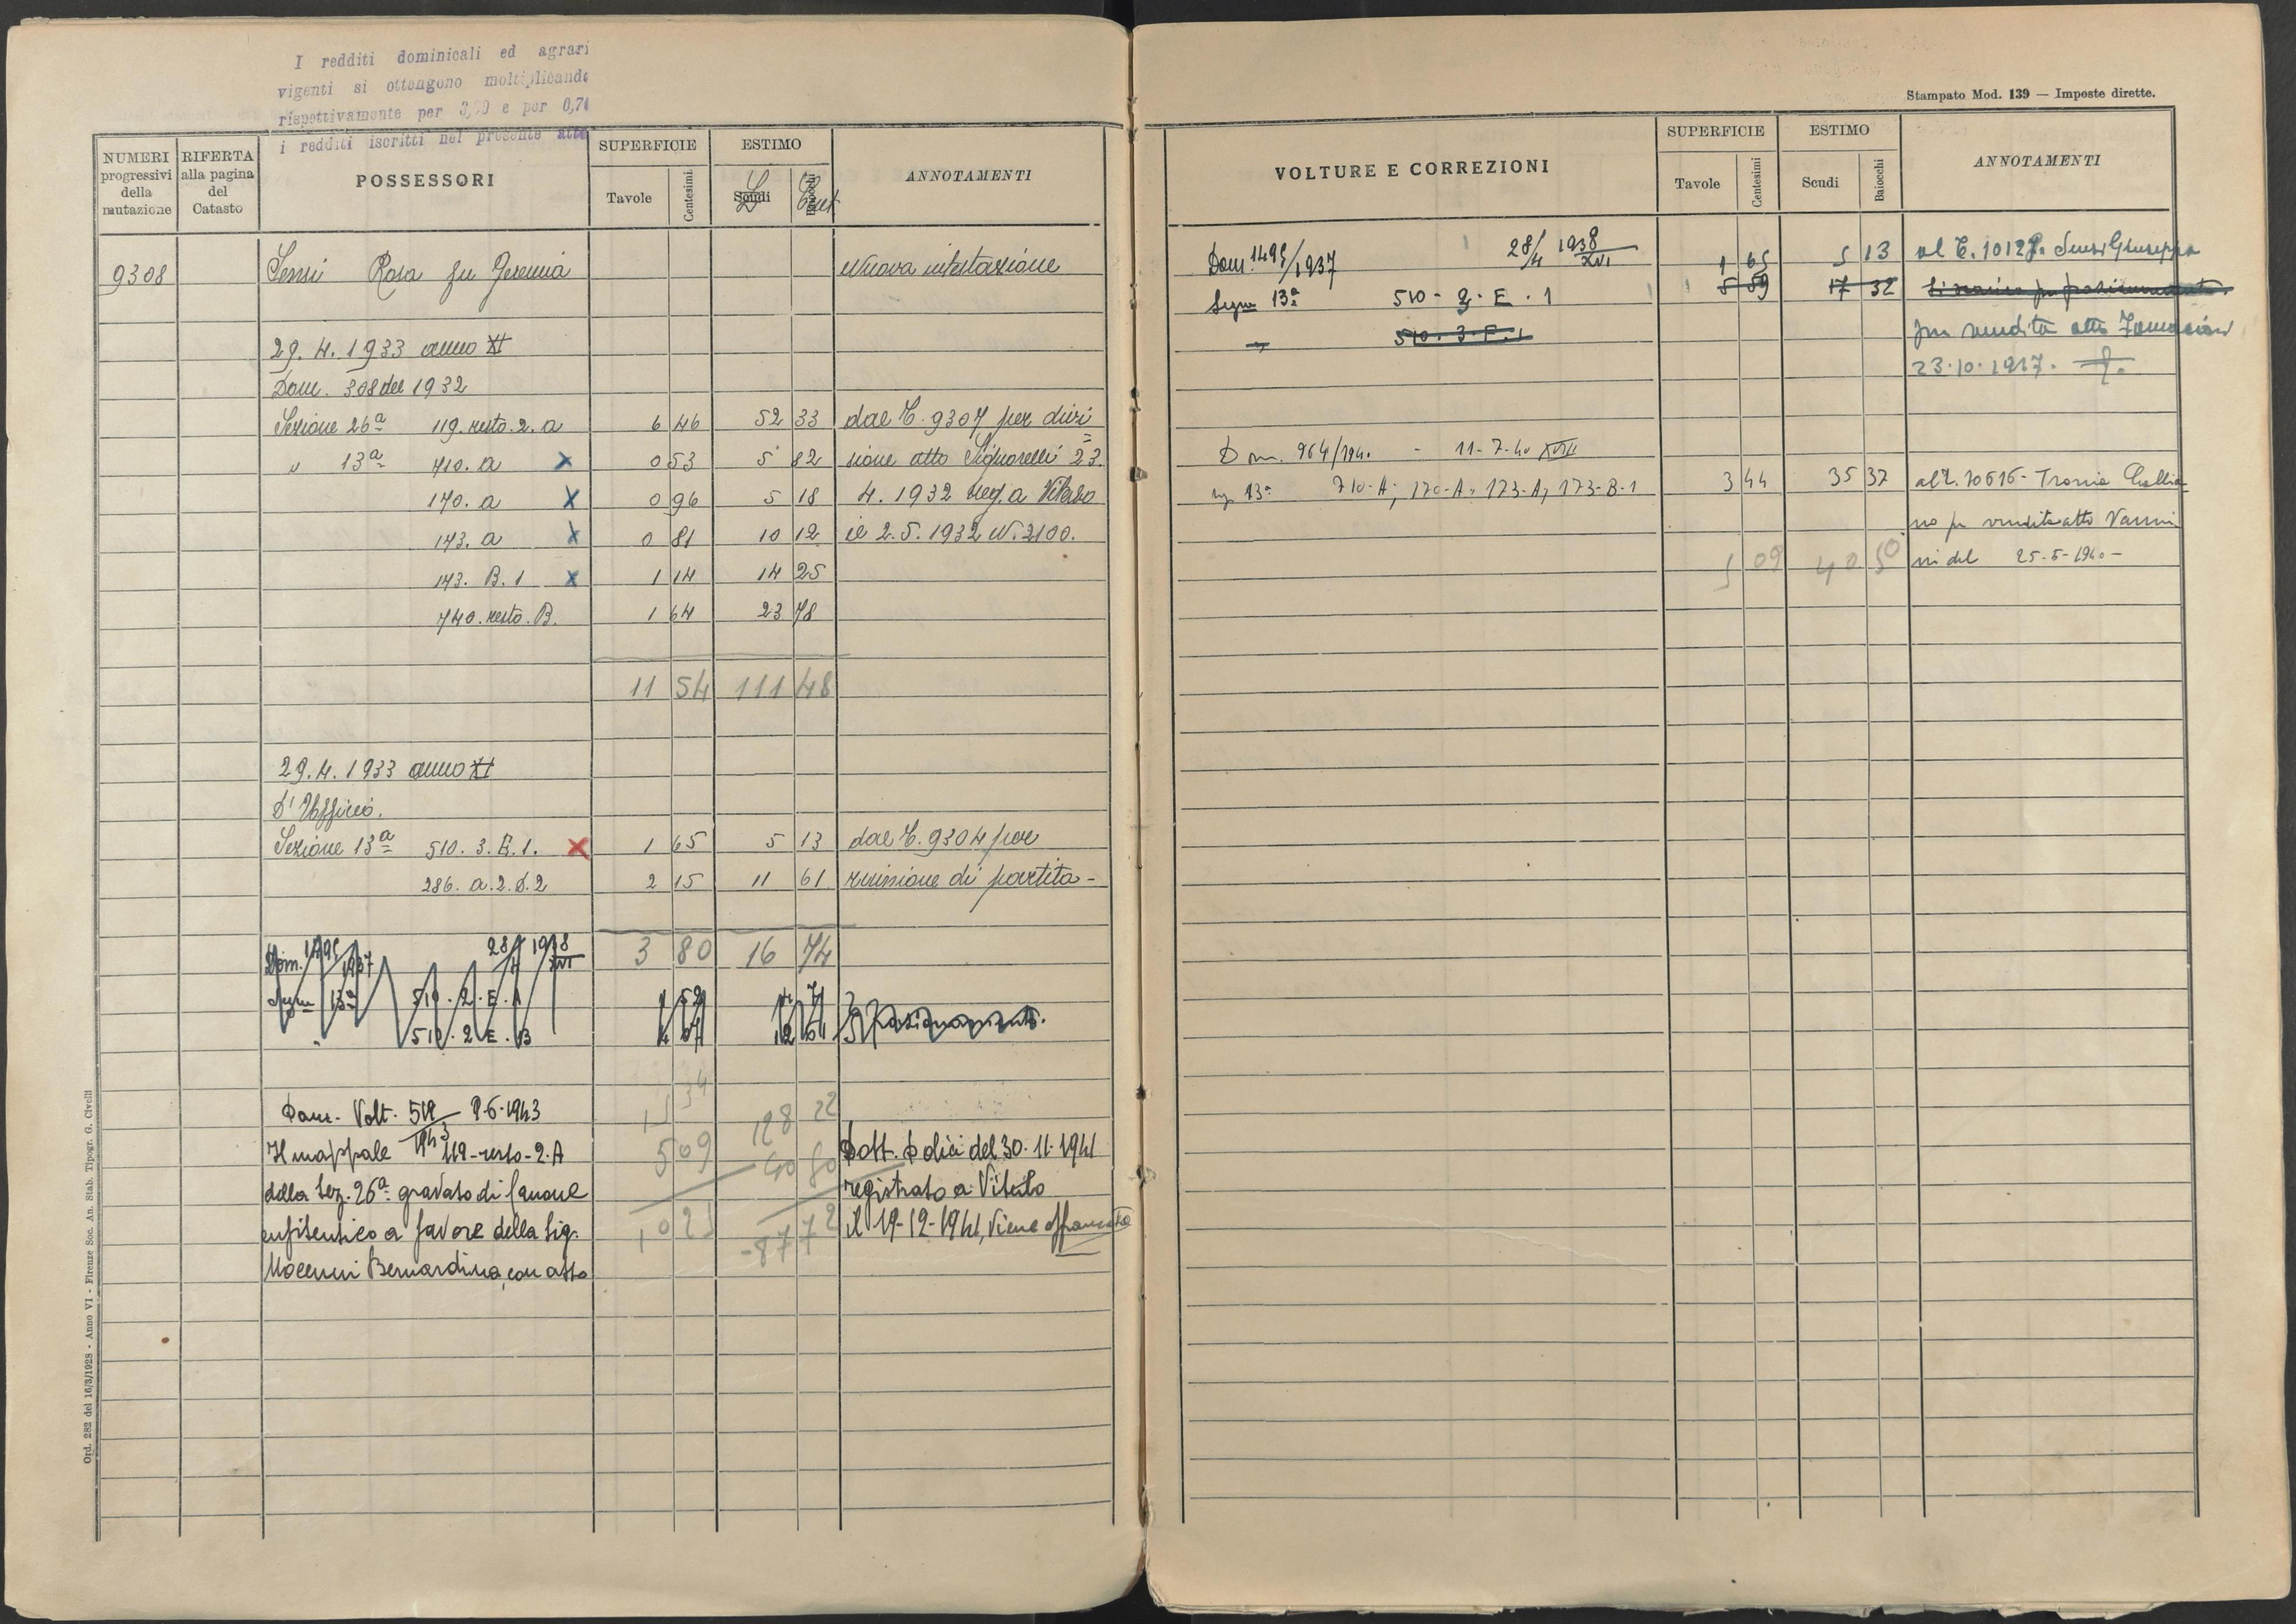 I redditi dominicali ed agrari
vigenti si ottengono moltiplicando
rispettivamente per 3,20 e per 0,71
i redditi iscritti nel presente atto
NUMERI progressivi della mutazione
RIFERTA alla pagina del Catasto
POSSESSORI
SUPERFICIE
Tavole Centesimi
ESTIMO
Scudi Baiocchi
ANNOTAMENTI
9308 Sensi Rosa fu Geremia Nuova intestazione
29.4.1933 anno XI
Dom. 308 del 1932
Sezione 26ª 119.resto.2.a 6 46 52 33 dal C. 9307 per divi
" 13ª 710.a x 0 53 5 82 sione atto Signorelli 23.
170.a x 0 96 5 18 4.1932 reg. a Viterbo
173.a x 0 81 10 12 il 2.5.1932 N. 2100.
173.B.1 x 1 14 14 25
740.resto.B. 1 64 23 78
11 54 111 48
29.4.1933 anno XI
D'Ufficio.
Sezione 13ª 510.3.E.1. x 1 65 5 13 dal C. 9304 per
286.a.2.d.2 2 15 11 61 riunione di partita -
3 80 16 74
Dom. 1495/1937 28/4 1938 XVI
Segue 13ª 510.2.E.A
" 510.2.E.B
15 34 128 22
Dom. Volt. 512/1943 9-6-1943
Il mappale 119-resto-2.A
della Sez. 26ª gravato di canone
enfiteutico a favore della Sig.
Mocenni Bernardina, con atto
Dott. Dolci del 30.11.1941
registrato a Viterbo
il 19-12-1941, viene affrancato
5 09 40 50
10 25 -87 72
Ord. 282 del 16/3/1928 - Anno VI - Firenze Soc. An. Stab. Tipogr. G. Civelli
Stampato Mod. 139 — Imposte dirette.
VOLTURE E CORREZIONI
SUPERFICIE
Tavole Centesimi
ESTIMO
Scudi Baiocchi
ANNOTAMENTI
Dom. 1495/1937 28/4 1938 XVI 1 65 5 13 al C. 10127. Sensi Giuseppa
Segue 13ª 510-3.E.1 5 59 17 32
" 510.3.F.1 per vendita atto
23.10.1937.
Dom. 964/1940 - 11-7-40 XVIII
13ª 710-A; 170-A; 173-A; 173-B-1 3 44 35 37 al C. 10616-
no per vendita atto Vanni
ni del 25-5-1940-
5 09 40 50